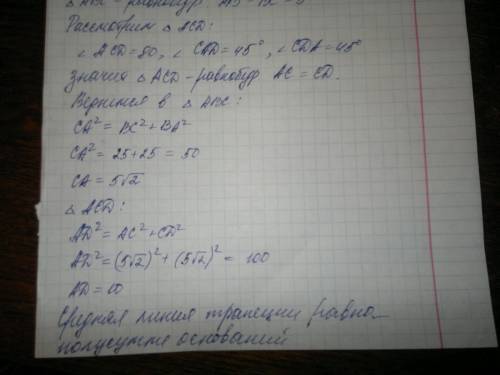 △ АВС – равнобедр. АВ = ВС = 5
Рассмотрим △ ACD:
∠ ACD = 90, ∠ CAD = 45°, ∠ CDA = 45°
значия △ ACD – равнобедр AC = CD.
Вернемся в △ АВС:
CA² = BC² + BA²
CA² = 25 + 25 = 50
CA = 5√2
△ ACD:
AD² = AC² + CD²
AD² = (5√2)² + (5√2)² = 100
AD = 10
Средняя линия трапеции равна
полусумме оснований